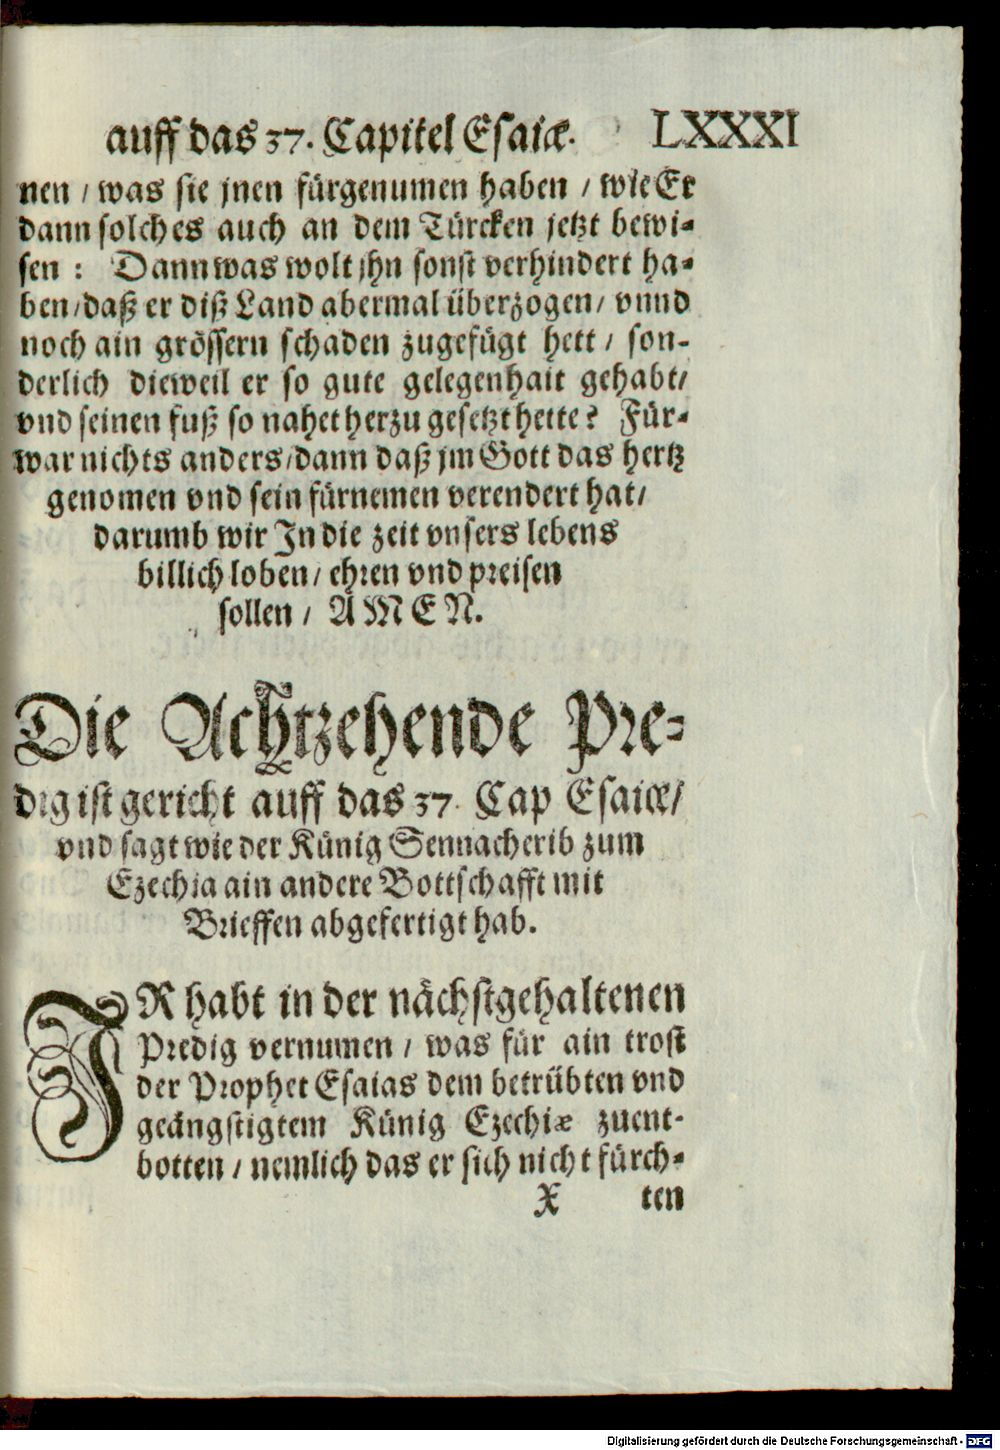 auff das 37. Capitel Esaiæ. LXXXI
nen / was sie jnen fürgenumen haben / wie Er
dann solches auch an dem Türcken jetzt bewi-
sen : Dann was wolt jhn sonst verhindert ha-
ben / daß er diß Land abermal überzogen / vnnd
noch ain grössern schaden zugefügt hett / son-
derlich dieweil er so gute gelegenhait gehabt /
vnd seinen fuß so nahet herzu gesetzt hette? Für-
war nichts anders / dann daß jm Gott das hertz
genomen vnd sein fürnemen verendert hat /
darumb wir In die zeit vnsers lebens
billich loben / ehren vnd preisen
sollen / AMEN.
Die Achtzehende Pre-
dig ist gericht auff das 37. Cap Esaiæ /
vnd sagt wie der Künig Sennacherib zum
Ezechia ain andere Bottschafft mit
Brieffen abgefertigt hab.
IR habt in der nächstgehaltenen
Predig vernumen / was für ain trost
der Prophet Esaias dem betrübten vnd
geängstigtem Künig Ezechiæ zuent-
botten / nemlich das er sich nicht fürch-
X ten
Digitalisierung gefördert durch die Deutsche Forschungsgemeinschaft - DFG